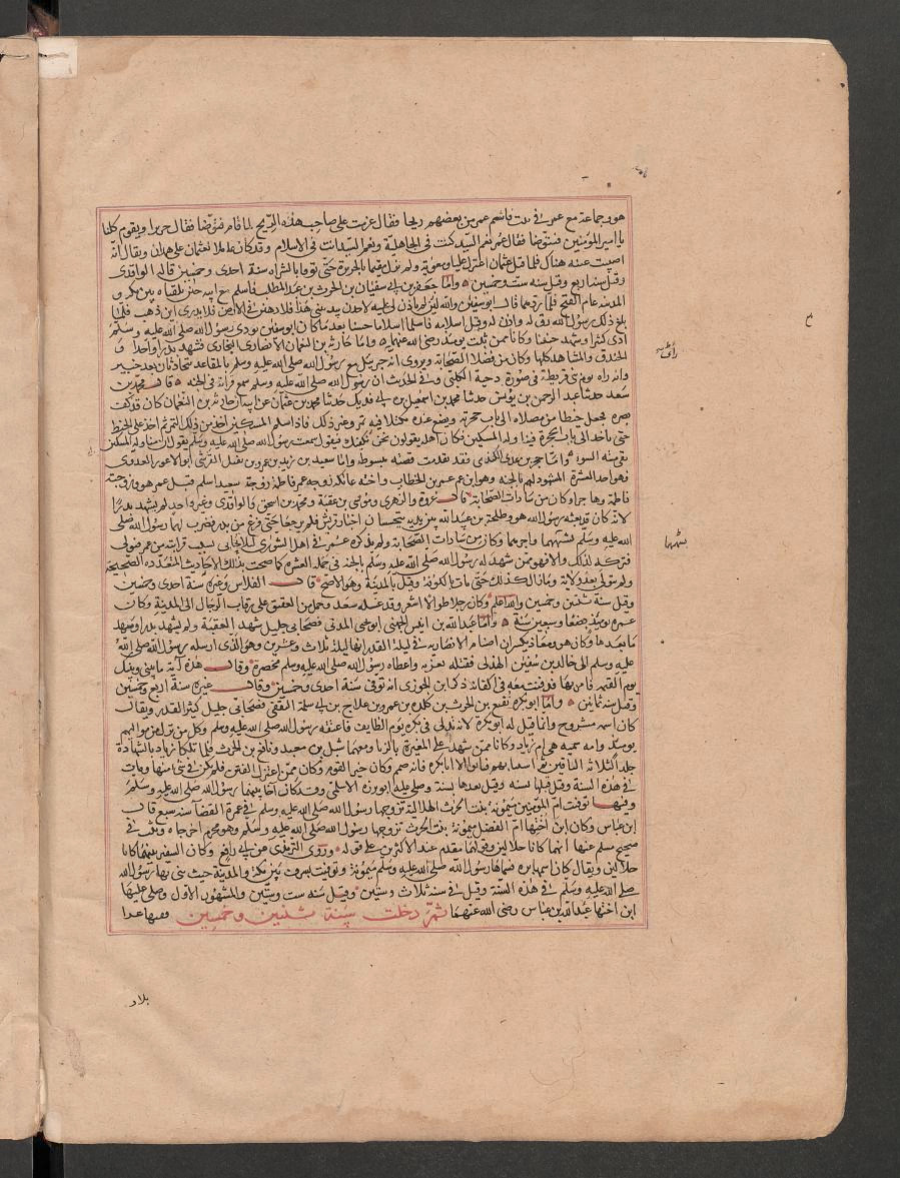 هو وجماعة مع عمر في بيت فاشتم عمر من بعضهم ريحا فقال عزمت على صاحب هذه الريح لما قام فتوضا فقال جرير او يقوم كلنا
يا امير المؤمنين فنتوضا فقال عمر نعم السيد كنت في الجاهلية ونعم السيد انت في الاسلام وقد كان عاملا لعثمان على همدان ويقال انه
اصيبت عينه هناك فلما قتل عثمان اعتزل عليا ومعوية ولم يزل مقيما بالجزيرة حتى توفي بالشراه سنة احدى وخمسين قاله الواقدي
وقيل سنة اربع وقيل سنة ست وخمسين واما جعفر بن ابي سفيان بن الحرث بن عبد المطلب فاسلم مع ابيه حين تلقياه بين مكة و
المدينة عام الفتح فلما ردهما قال ابو سفين والله لئن لم ياذن لي عليه لاخذن بيد بني هذا فلاذهبن في الارض فلا يدرى اين اذهب فلما
بلغ ذلك رسول الله رق له واذن له وقبل اسلامه فاسلما اسلاما حسنا بعد ما كان ابو سفين يوذي رسول الله صلى الله عليه وسلم
اذى كثيرا وشهد حنينا وكانا ممن ثبت يومئذ رضي الله عنهما واما حارثة بن النعمان الانصاري النجاري فشهد بدرا واحدا و
الخندق والمشاهد كلها وكان من فضلا الصحابة ويروى انه راى جبريل مع رسول الله صلى الله عليه وسلم بالمقاعد يتحادثان بعد خيبر
وانه راه يوم بني قريظة في صورة دحية الكلبي وفي الحديث ان رسول الله صلى الله عليه وسلم سمع قراته في الجنة قال محمد بن
سعد حدثنا عبد الرحمن بن يونس حدثنا محمد بن اسمعيل بن ابي فديك حدثنا محمد بن عثمان عن ابيه ان حارثة بن النعمان كان قد كف
بصره فجعل خيطا من مصلاه الى باب حجرته ويضع عنده مكتلا فيه تمر وغير ذلك فاذا سلم المسكين اخذ من ذلك التمر ثم اخذ على الخيط
حتى ياخذ الى باب الحجرة فيناوله المسكين فكان اهله يقولون نحن نكفيك فيقول سمعت رسول الله صلى الله عليه وسلم يقول ان مناولة المسكين
تقي ميتة السوء واما حجر بن عدي الكندي فقد تقدمت قصته مبسوطة واما سعيد بن زيد بن عمرو بن نفيل القرشي ابو الاعور العدوي
فهو احد العشرة المشهود لهم بالجنة وهو ابن عم عمر بن الخطاب واخته عاتكة زوجة عمر فاطمة زوجة سعيد اسلم قبل عمر هو وزوجته
فاطمة وهاجرا وكان من سادات الصحابة قال عروة والزهري وموسى بن عقبة ومحمد بن اسحق والواقدي وغير واحد لم يشهد بدرا
لانه كان قد بعثه رسول الله هو وطلحة بن عبيد الله بين يديه يتحسسان اخبار قريش فلم يرجعا حتى فرغ من بدر فضرب لهما رسول الله صلى
الله عليه وسلم بسهمهما واجرهما وكان من سادات الصحابة ولم يذكره عمر في اهل الشورى لئلا يحابى بسبب قرابته من عمر فيولى
فتركه لذلك والا فهو ممن شهد له رسول الله صلى الله عليه وسلم بالجنة في جملة العشرة كما صحت بذلك الاحاديث المتعددة الصحيحة
ولم يتول بعده ولاية وما زال كذلك حتى مات بالكوفة وقيل بالمدينة وهو الاصح قال الفلاس وغيره سنة احدى وخمسين
وقيل سنة ثنتين وخمسين والله اعلم وكان رجلا طوالا اشعر وقد غسله سعد وحمل من العقيق على رقاب الرجال الى المدينة وكان
عمره يومئذ بضعا وسبعين سنة واما عبد الله بن انيس الجهني ابو يحيى المدني فصحابي جليل شهد العقبة ولم يشهد بدرا وشهد
ما بعدها وكان هو ومعاذ يكسران اصنام الانصار له في ليلة القدر انها ليلة ثلاث وعشرين وهو الذي ارسله رسول الله صلى الله
عليه وسلم الى خالد بن سفين الهذلي فقتله بعرنة واعطاه رسول الله صلى الله عليه وسلم مخصرة وقال هذه اية ما بيني وبينك
يوم القيمة فامر بها فدفنت معه في اكفانه ذكر ابن الجوزي انه توفي سنة احدى وخمسين وقال غيره سنة اربع وخمسين
وقيل سنة ثمانين واما ابو بكرة نفيع بن الحرث بن كلدة بن عمرو بن علاج بن ابي سلمة الثقفي فصحابي جليل كبير القدر ويقال
كان اسمه مسروح وانما قيل له ابو بكرة لانه تدلى في بكرة يوم الطايف فاعتقه رسول الله صلى الله عليه وسلم وكل من نزل من مواليهم
يومئذ وامه سمية هي ام زياد وكانا ممن شهد على المغيرة بالزنا ومعهما شبل بن معبد ونافع بن الحرث فلما تلكا زياد بالشهادة
جلد الثلاثة الباقين ثم استتابهم فتابوا الا ابا بكرة فانه صمم وكان خير القوم وكان ممن اعتزل الفتن فلم يكن في شي منها ومات
في هذه السنة وقيل قبلها بسنة وقيل بعدها بسنة وصلى عليه ابو برزة الاسلمي وقد كان اخا بينهما رسول الله صلى الله عليه وسلم
وفيها توفيت ام المؤمنين ميمونة بنت الحرث الهلالية تزوجها رسول الله صلى الله عليه وسلم في عمرة القضا سنة سبع قال
ابن عباس وكان ابن اختها ام الفضل ميمونة بنت الحرث تزوجها رسول الله صلى الله عليه وسلم وهو محرم اخرجاه وثبت في
صحيح مسلم عنها انهما كانا حلالين وقولها مقدم عند الاكثرين على قوله وروى الترمذي عن ابي رافع وكان السفير بينهما كانا
حلالين ويقال كان اسمها بره فسماها رسول الله صلى الله عليه وسلم ميمونة وتوفيت بسرف بين مكة والمدينة حيث بنى بها رسول الله
صلى الله عليه وسلم في هذه السنة وقيل في سنة ثلاث وستين وقيل سنة ست وستين والمشهور الاول وصلى عليها
ابن اختها عبد الله بن عباس رضي الله عنهما ثم دخلت سنة ثنتين وخمسين ففيها غدا
بسهمهما
بلاد